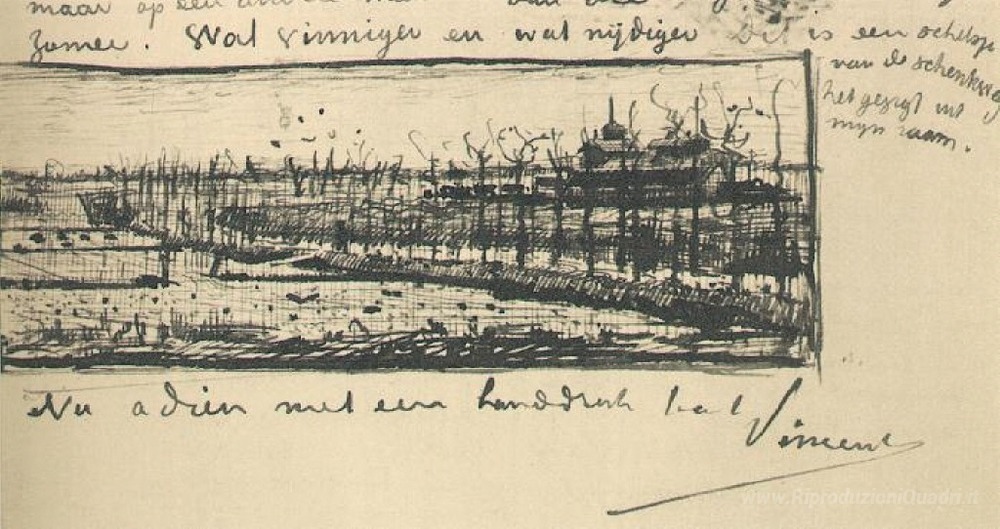 maar op een
zomer. Wat vinniger en wat nijdiger Dit is een schetsje
van de schenkweg
het gezigt uit
mijn raam.
Nu adieu met een handdruk t.à t.
Vincent
www.RiproduzioniQuadri.it